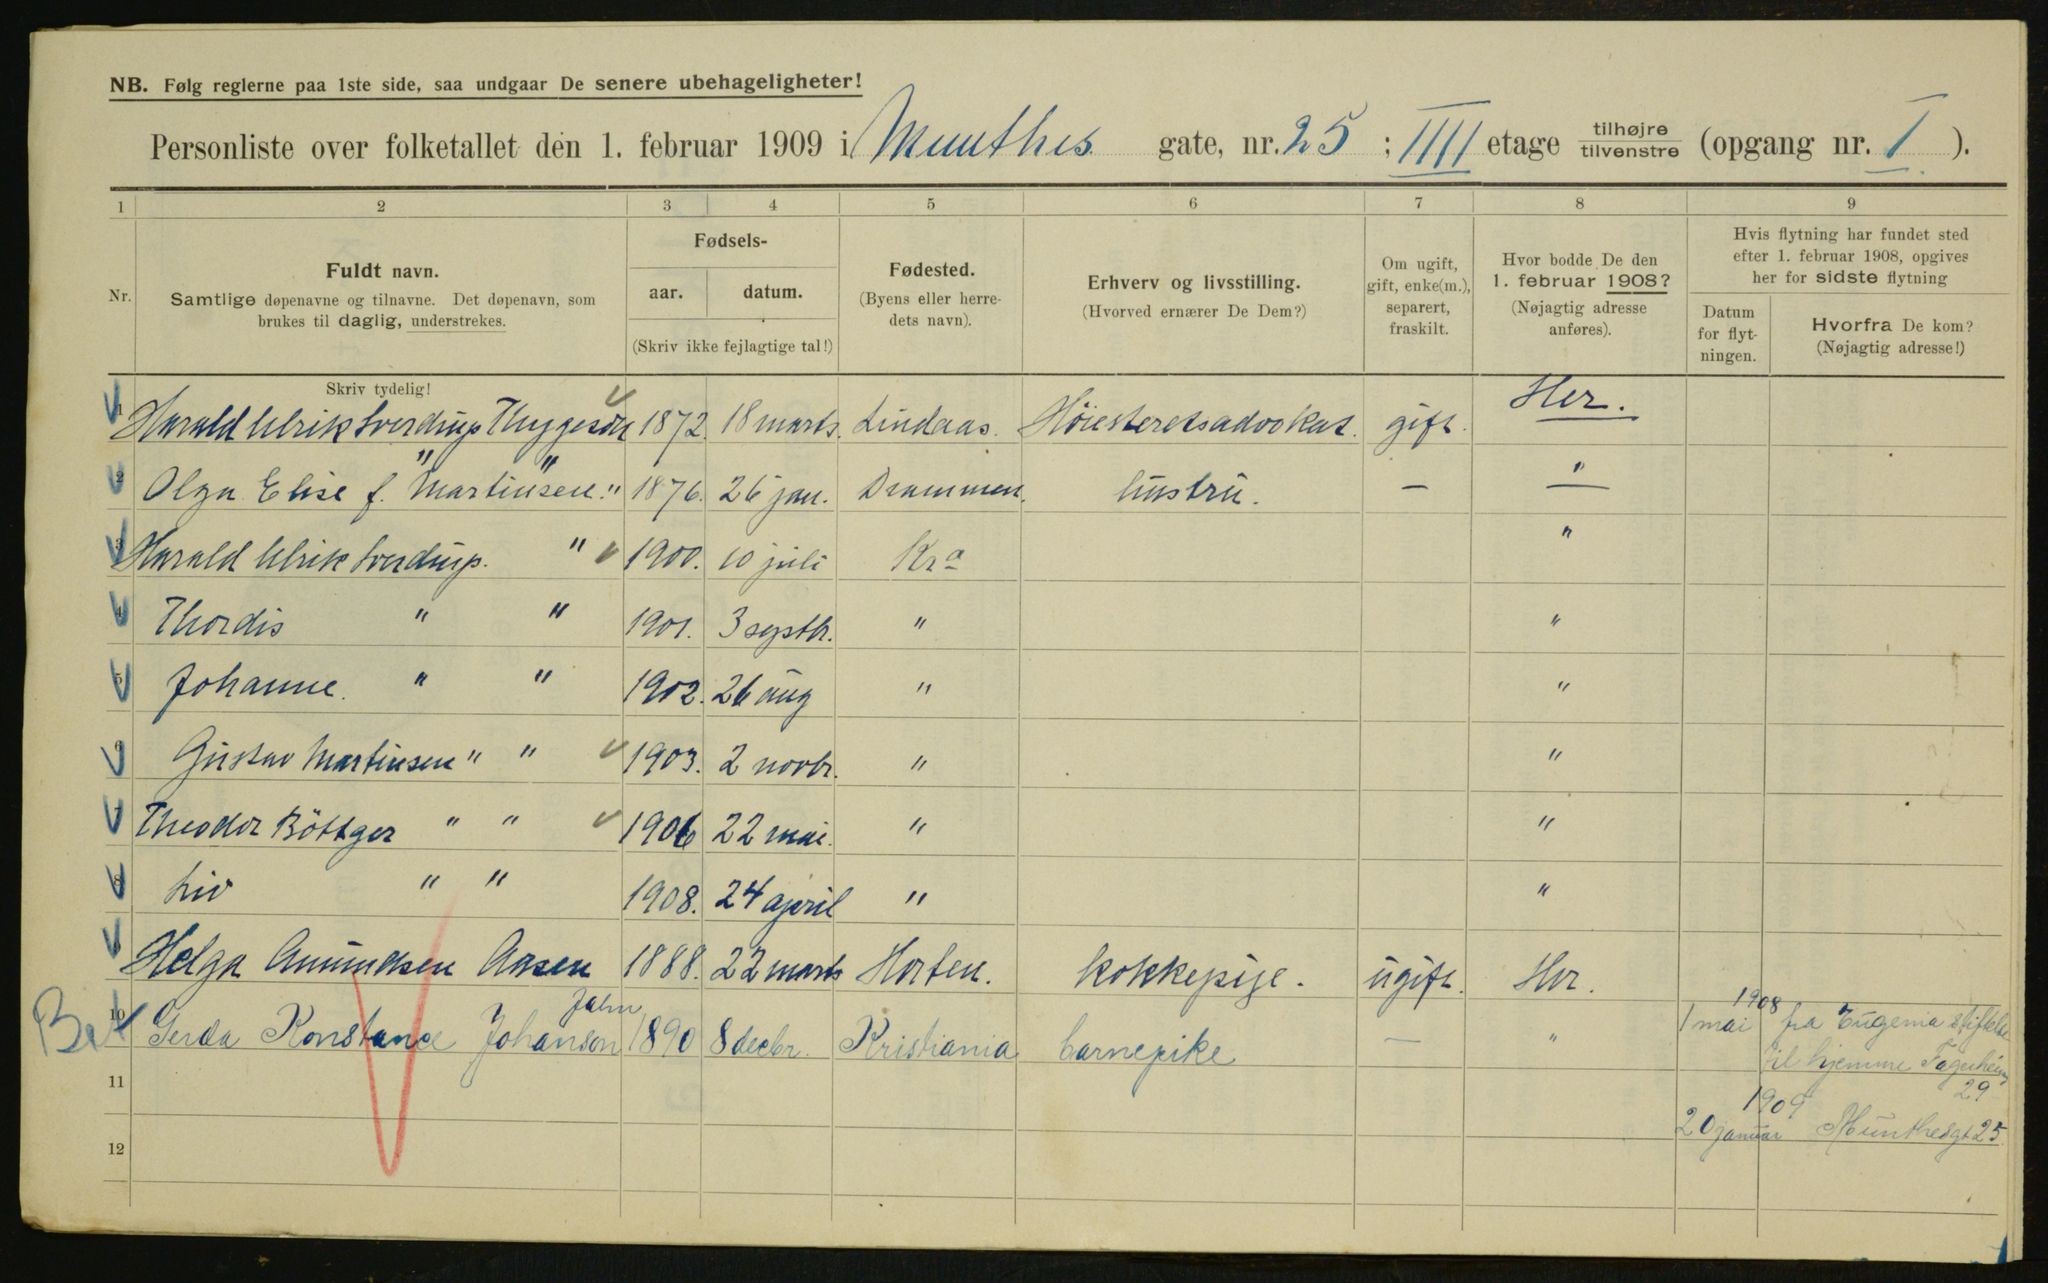 NB. Følg reglerne paa 1ste side, saa undgaar De senere ubehageligheter!
Personliste over folketallet den 1. februar 1909 i Munthes gate, nr. 25 ; IIII etage tilhøjre tilvenstre (opgang nr. I ).
1 2 3 4 5 6 7 8 9
Nr.
Fuldt navn.
Samtlige døpenavne og tilnavne. Det døpenavn, som
brukes til daglig, understrekes.
Skriv tydelig!
Fødsels-
aar. datum.
(Skriv ikke fejlagtige tal!)
Fødested.
(Byens eller herre-
dets navn).
Erhverv og livsstilling.
(Hvorved ernærer De Dem?)
Om ugift,
gift, enke(m.),
separert,
fraskilt.
Hvor bodde De den
1. februar 1908?
(Nøjagtig adresse
anføres).
Hvis flytning har fundet sted
efter 1. februar 1908, opgives
her for sidste flytning
Datum
for flyt-
ningen.
Hvorfra De kom?
(Nøjagtig adresse!)
1 Harald Ulrik Sverdrup Thygeson 1872. 18 marts. Lindaas. Høiesteretsadvokat. gift. Her.
2 Olga Elise f. Martinsen " " " 1876. 26 jan. Drammen. hustru. — "
3 Harald Ulrik Sverdrup. " 1900. 10 juli Kra "
4 Thordis " " 1901. 3 septb. " "
5 Johanne. " " 1902. 26 aug " "
6 Gustav Martinsen " " 1903. 2 novbr. " "
7 Theodor Böttger " " 1906 22 mai. " "
8 Liv " " 1908. 24 april " "
9 Helga Amundsen Aasen 1888. 22 marts Horten. kokkepige. ugift. Her.
10 Gerda Konstance Johanson 1890 8 decbr. Kristiania barnepike — " 1 mai 1908 fra Eugenia stiftelse
11 til hjemme Fagerheim
29
1909
20 januar Munthesgt 25.
12